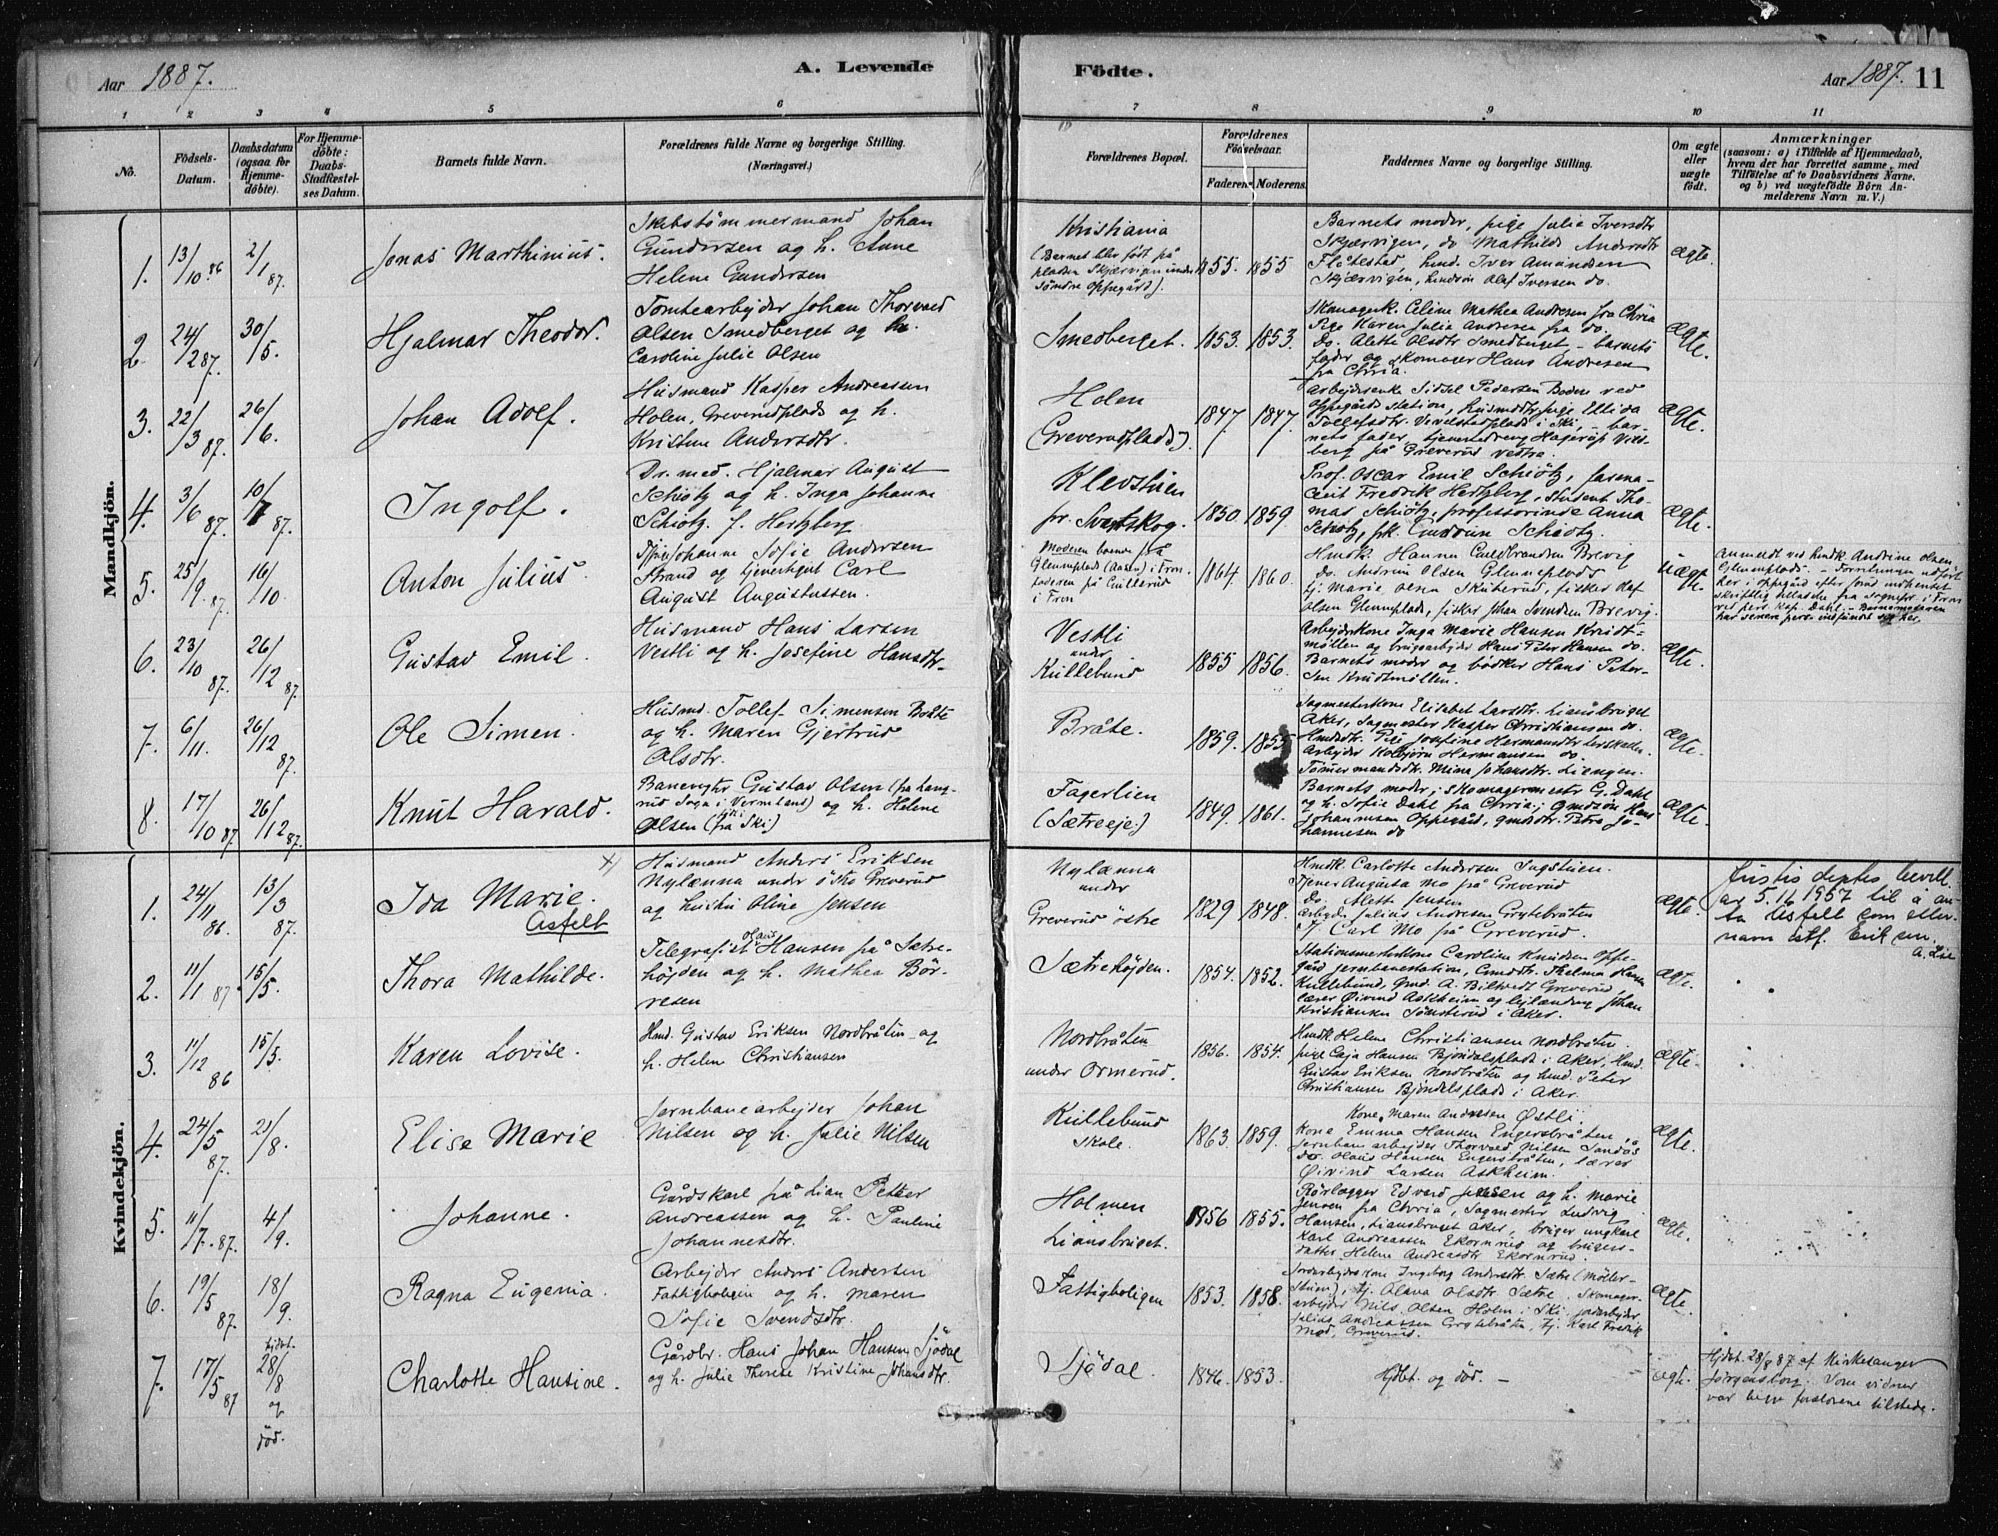 Aar 1887.
A. Levende
Födte.
Aar 1887. 11
1 2 3 4 5 6 7 8 9 10 11
No.
Födsels-Datum.
Daabsdatum (ogsaa for Hjemme-döbte).
For Hjemme-döbte: Daabs-Stadfæstel-ses Datum.
Barnets fulde Navn.
Forældrenes fulde Navne og borgerlige Stilling. (Næringsvei.)
Forældrenes Bopæl.
Forældrenes Födselsaar.
Faderens. Moderens.
Faddernes Navne og borgerlige Stilling.
Om ægte eller uægte födt.
Anmærkninger
(saasom: a) i Tilfælde af Hjemmedaab, hvem der har forrettet samme, med Tilföielse af to Daabsvidners Navne, og b) ved uægtefödte Börn An-melderens Navn m. V.)
Mandkjön.
1. 13/10 86 2/1 87. Jonas Marthinius.
Skibstömmermand Johan
Gundersen og h. Anne
Helene Gundersen
Kristiania
(Barnet blev født på
pladsen Skjærvigen under
søndre Oppegård).
1855. 1855
Barnets moder, pige Julie Iversdtr
Skjærvigen, do Mathilde Andersdtr
Flåtestad, husmd. Iver Amundsen
Skjærvigen, husmdsøn Olaf Iversen do.
ægte.
2. 24/2 87. 30/5. Hjalmar Theodor.
Tomtearbejder Johan Thorvald
Olsen Smedberget og h.
Caroline Julie Olsen
Smedberget. 1853. 1853.
Skomagerk. Celine Mathea Andresen fra Chria
Pige Karen Julia Andresen fra do.
Do. Alette Olsdtr Smedberget - barnets
fader og skomager Hans Andresen
fra Chria.
ægte.
3. 22/3 87. 26/6. Johan Adolf.
Husmand Kasper Andreassen
Holen, Greverudplads og h.
Kristine Andersdtr.
Holen
(Greverudplads).
1847. 1847.
Arbejderenke Sidsel Pedersen Boden ved
Oppegårds station, husmdtr, pige Ellida
Tollefsdtr. Vevelstadplads i Ski, - bar-
nets fader, tjenestedreng Hagerup
berg på Greverud vestre.
ægte.
4. 3/6 87. 10/7 87. Ingolf.
Dr. med. Hjalmar August
Schiötz og h. Inga Johanne
Schiötz f. Hertzberg
Klevstuen
pr. Svartskog.
1850. 1859
Prof. Oscar Emil Schiötz, farma-
ceut Fredrik Hertzberg, student Tho-
mas Schiötz, professorinde Anna
Schiötz, frk. Gudrun Schiötz.
ægte.
5. 25/9. 87. 16/10. Anton Julius.
Johanne Sofie Andersen
Strand og tjenestegut Carl
August Augustussen.
Moderen boende på
Glenneplads (Aasen) i Fron
faderen på Gullerud
i Fron
1864. 1860.
Hmdk. Hanna Guldbrandsen Brevig
do. Andrine Olsen Glenneplads
tj. Marie Olsen Skuterud, fisker Olaf
Olsen Glenneplads, fisker Johan Svendsen Brevig.
uægte.
Anmeldt ved hmdk. Andrine Olsen,
Glenneplads. - Forretningen udført
her i Oppegård efter som indhentet
skriftlig tilladelse fra Sognepr. i Fron
ved pers. kap. Dahl. - Barnemoderen
har senere pers. indfundet sig her.
6. 23/10 87. 26/12 87. Gustav Emil.
Husmand Hans Larsen
Vestli og h. Josefine Hansdtr.
Vestli
under
Kullebund
1855 1856.
Arbejderkone Inga Marie Hansen Krudt-
møllen og brugsarbejder Hans Peter Hansen do.
Barnets moder og bødker Hans Peter-
sen Krudtmøllen.
ægte.
7. 6/11. 26/12 87. Ole Simen.
Husmd. Tollef Simensen Bråte
og h. Maren Gjertrud
Olsdtr.
Bråte. 1859. 1855.
Sagmesterkone Elisabet Larsdtr. Liansbruget
Aker, Sagmester Kasper Christiansen do.
Hmdsdtr. Pige Josefine Hermansdtr
arbejder Kolbjørn Hermansen do.
Tömmermandsdtr. Mina Johansdtr. Liengen.
ægte.
8. 17/10 87. 26/12 87. Knut Harald.
Banevogter Gustav Olsen (fra
Sogn i Vermland) og h. Helene
Olsen (fra Ski)
Fagerlien
(Sætreeje.)
1849. 1861.
Barnets moder, skomagermester G. Dahl
og h. Sofie Dahl fra Chria, gmdsøn Hans
Johannesen Oppegård, gmdsdtr. Petra Jo-
hannesen do
ægte.
Kvindekjön.
1. 24/11 86. 13/3 87. Ida Marie. x)
Asfelt
Husmand Anders Eriksen
Nylænna under østre Greverud
og hustru Oline Jensen
Nylænna
under
Greverud östre
1829 1848.
Hmdk. Carlotte Andersen Ingstuen.
Tjener Augusta Mo på Greverud
Do. Alett Jensen
arbejder Julius Andresen Grytebråten
Tj. Carl Mo på Greverud.
ægte.
Justis deptes bevill.
av 5.11 1957 til å an-
ta Asfelt som etter-
navn istf. Eriksen.
A. Lie
2. 11/1 87. 15/5. Thora Mathilde.
Telegrafist Olaus Hansen på Sætre-
höjden og h. Mathea Bör-
resen
Sætrehöjden. 1854. 1852.
Stationsmesterkone Caroline Knudsen Oppe-
gård jernbanestation, Gmdsdtr. Thelma Hansen
Kullebund, Gmd. A. Bilkvedt Greverud,
lærer Øivind Askheim og lejlænding Johan
Kristiansen Sønsterud i Aker.
ægte.
3. 11/12 86 15/5. Karen Lovise.
Hmd. Gustav Eriksen Nordbråten og
h. Helene Christiansen
Nordbråten
under Ormerud.
1856. 1854.
Hmdk. Helene Christiansen Nordbråten.
pige Caja Hansen Bjöndalsplads i Aker, Hmd.
Gustav Eriksen Nordbråten og hmd. Peter
Christiansen Bjöndelsplads i Aker.
ægte.
4. 24/5 87. 21/8. Elise Marie
Jernbanearbejder Johan
Nilsen og h. Julie Nilsen
Kullebund
Skole.
1863. 1859.
Kone Maren Andresen Østli.
Kone Emma Hansen Engersbråten,
Jernbanearbejder Thorvald Nilsen Sandås
do. Hans Hansen Engersbråten, lærer
Øivind Larsen Askheim.
ægte.
5. 11/7. 87. 4/9. Johanne.
Gårdskarl på Lian Petter
Andreassen og h. Pauline
Johannesdtr.
Holmen
Liansbruget.
1856 1855.
Rörlægger Edvard Jensen og h. Marie
Jensen fra Chria, Sagmester Ludvig
Hansen, Liansbruget Aker, bruger ungkarl
Karl Andreassen Ekornrud og brugers-
datter Helene Andreasdtr Ekornrud.
ægte.
6. 19/5 87. 18/9. Ragna Eugenia.
Arbejder Anders Andersen
Fattigboligen og h. Maren
Sofie Svendsdtr.
Fattigboligen 1853. 1858.
Jordarbejderkone Ingeborg Andersdtr Sætre (Möller-
stuen), tj. Olava Olsdtr Sætre, Skomager-
arbejder Nils Olsen Holm i Ski, jordarbejder
Julius Andreassen Grytebråten, tj. Karl Fredrik
Mod, Greverud.
ægte.
7. 17/5 87 hjdbt. 28/8 og död. Charlotte Hansine.
Gårdbr. Hans Johan Hansen Sjödal
og h. Julie Therese Kristine Johansdtr.
Sjödal. 1846. 1853.
Hjdbt. og död. -
ægte.
Hjdbt. 28/8 87 af Kirkesanger
Jörgensborg. Som vidner
var begge forældrene tilstede.